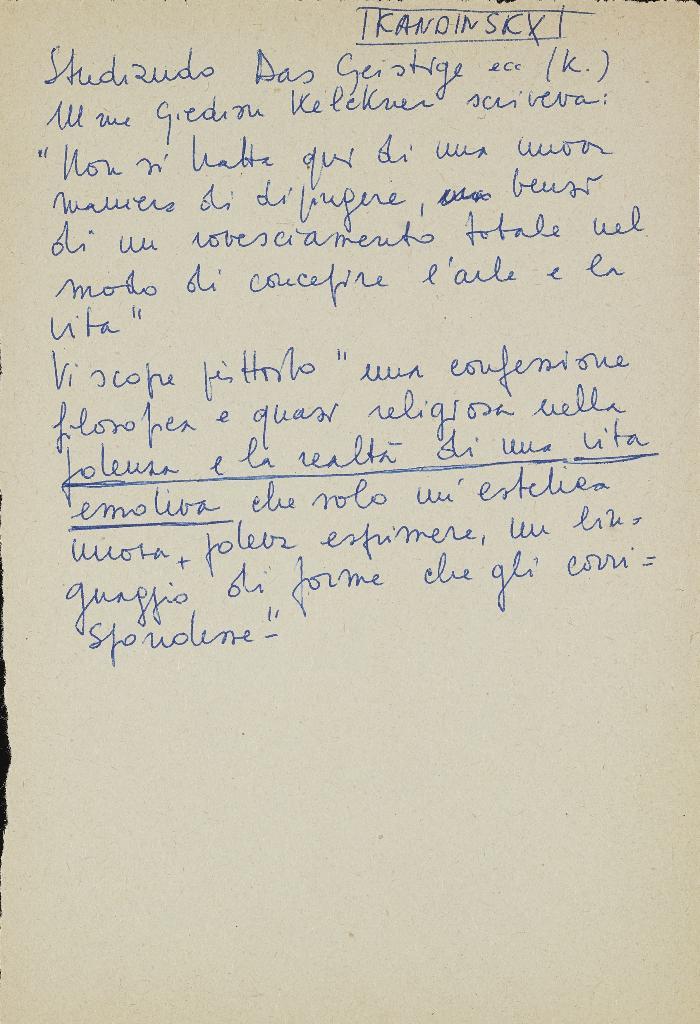 KANDINSKY
Studiando Das Geistige ecc (K.)
Mme Giedion Welckner scriveva:
"Non si tratta qui di una nuova
maniera di dipingere, bensì
di un rovesciamento totale nel
modo di concepire l'arte e la
vita"
Vi scopre piuttosto "una confessione
filosofica e quasi religiosa nella
potenza e la realtà di una vita
emotiva che solo un'estetica
nuova, poteva esprimere, un lin=
guaggio di forme che gli corri=
spondesse"-